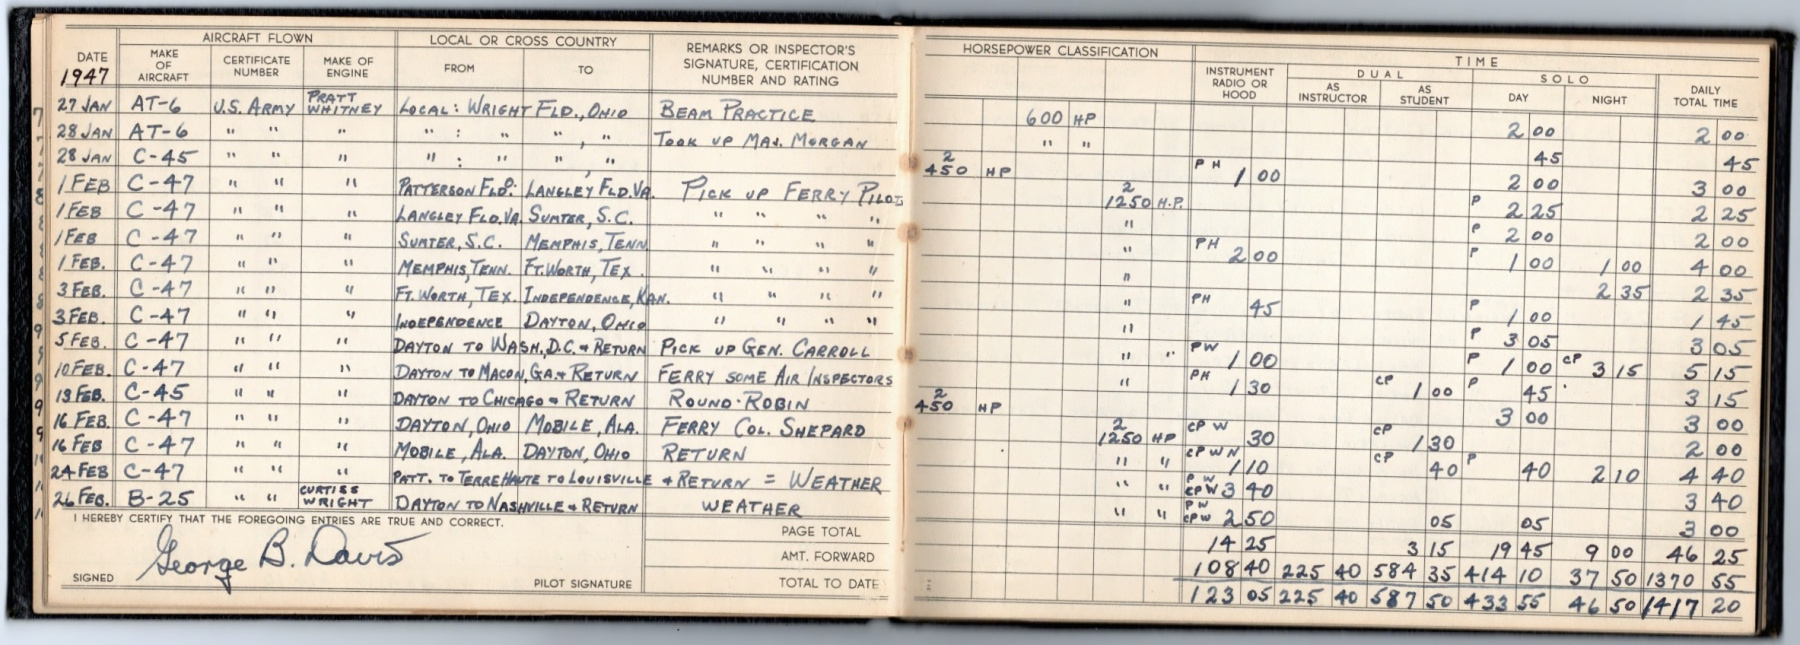 AIRCRAFT FLOWN LOCAL OR CROSS COUNTRY REMARKS OR INSPECTOR'S SIGNATURE, CERTIFICATION NUMBER AND RATING
DATE 1947 MAKE OF AIRCRAFT CERTIFICATE NUMBER MAKE OF ENGINE FROM TO
27 JAN AT-6 U.S. ARMY PRATT WHITNEY LOCAL: WRIGHT FLD., OHIO BEAM PRACTICE
28 JAN AT-6 " " " " : " " , " TOOK UP MAJ. MORGAN
28 JAN C-45 " " " " : " " , "
1 FEB C-47 " " " PATTERSON FLD: LANGLEY FLD. VA. PICK UP FERRY PILOT
1 FEB C-47 " " " LANGLEY FLD. VA. SUMTER, S.C. " " " "
1 FEB C-47 " " " SUMTER, S.C. MEMPHIS, TENN. " " " "
1 FEB. C-47 " " " MEMPHIS, TENN. FT. WORTH, TEX. " " " "
3 FEB. C-47 " " " FT. WORTH, TEX. INDEPENDENCE, KAN. " " " "
3 FEB. C-47 " " " INDEPENDENCE DAYTON, OHIO " " " "
5 FEB. C-47 " " " DAYTON TO WASH, D.C. & RETURN PICK UP GEN. CARROLL
10 FEB. C-47 " " " DAYTON TO MACON, GA. & RETURN FERRY SOME AIR INSPECTORS
13 FEB. C-45 " " " DAYTON TO CHICAGO & RETURN ROUND-ROBIN
16 FEB. C-47 " " " DAYTON, OHIO MOBILE, ALA. FERRY COL. SHEPARD
16 FEB C-47 " " " MOBILE, ALA. DAYTON, OHIO RETURN
24 FEB C-47 " " " PATT. TO TERRE HAUTE TO LOUISVILLE & RETURN = WEATHER
26 FEB. B-25 " " CURTISS WRIGHT DAYTON TO NASHVILLE & RETURN WEATHER
I HEREBY CERTIFY THAT THE FOREGOING ENTRIES ARE TRUE AND CORRECT.
George B. Davis
SIGNED PILOT SIGNATURE
PAGE TOTAL
AMT. FORWARD
TOTAL TO DATE
HORSEPOWER CLASSIFICATION TIME
INSTRUMENT RADIO OR HOOD DUAL SOLO DAILY TOTAL TIME
AS INSTRUCTOR AS STUDENT DAY NIGHT
600 HP 2 00 2 00
" " 45 45
2 450 HP PH 1 00 2 00 3 00
2 1250 H.P. P 2 25 2 25
" P 2 00 2 00
" PH 2 00 P 1 00 1 00 4 00
" 2 35 2 35
" PH 45 P 1 00 1 45
" P 3 05 3 05
" " PW 1 00 P 1 00 CP 3 15 5 15
" PH 1 30 CP 1 00 P 45 3 15
2 450 HP 3 00 3 00
2 1250 HP CP W 30 CP 1 30 2 00
" " CP W N 1 10 CP 40 P 40 2 10 4 40
" " PW CPW 3 40 3 40
" " PW CPW 2 50 05 05 3 00
14 25 3 15 19 45 9 00 46 25
108 40 225 40 584 35 414 10 37 50 1370 55
123 05 225 40 587 50 433 55 46 50 1417 20